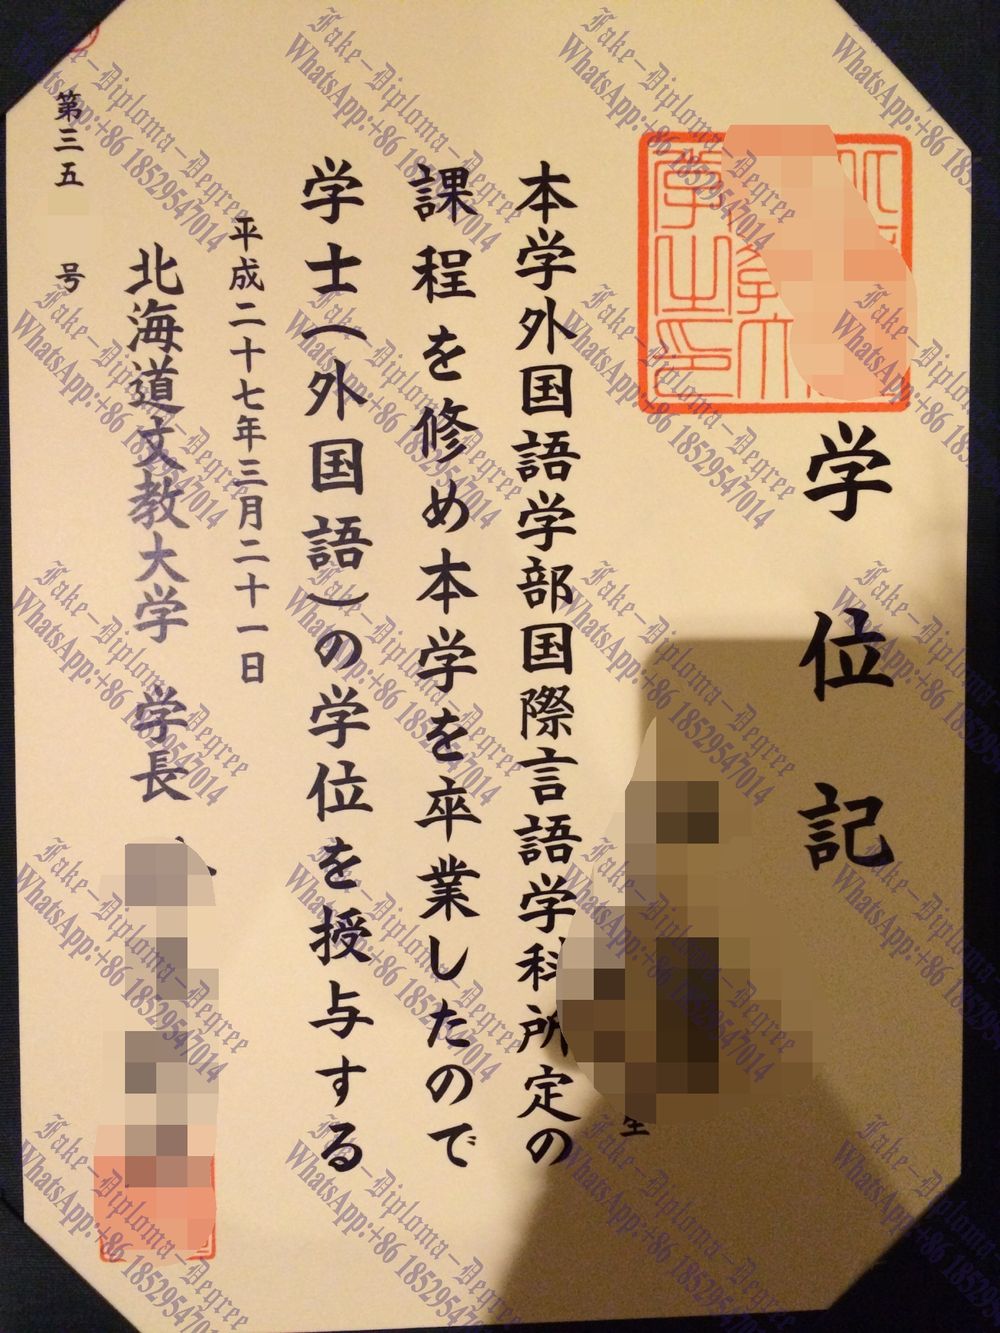 学位記
生
本学外国語学部国際言語学科所定の
課程を修め本学を卒業したので
学士(外国語)の学位を授与する
平成二十七年三月二十一日
北海道文教大学 学長
第三五 号
Fake-Diploma-Degree
WhatsApp:+86 18529547014